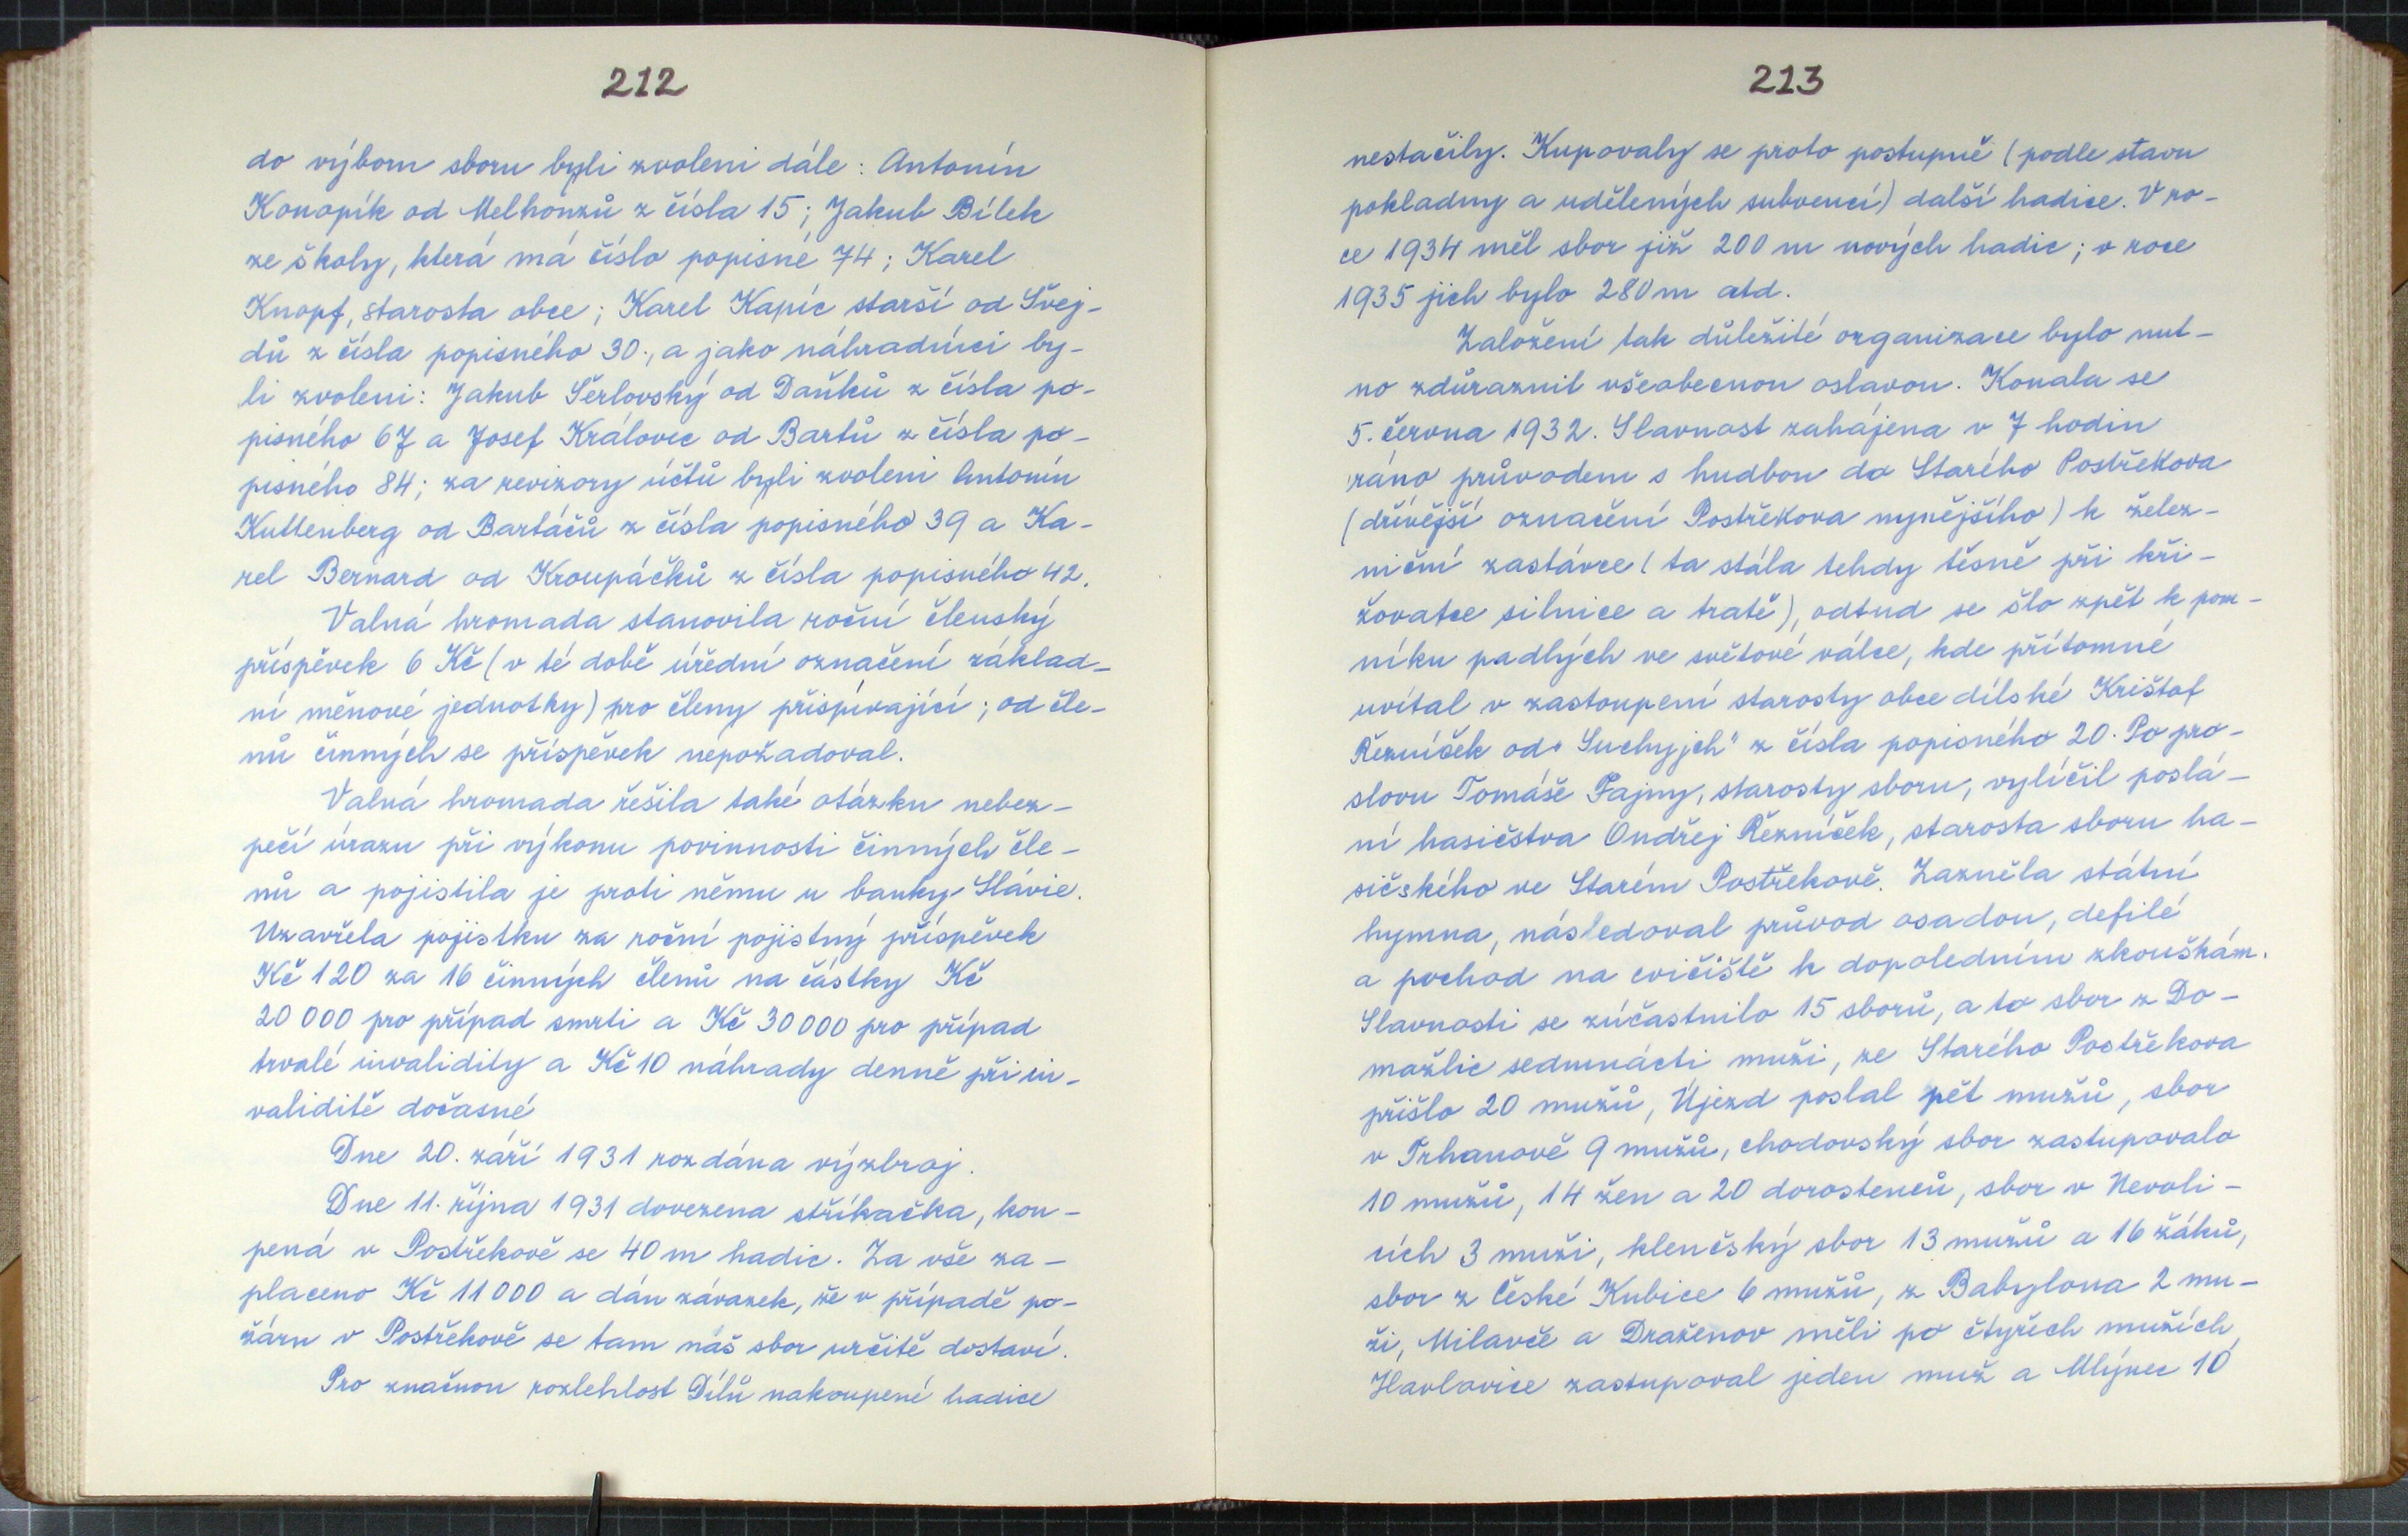 212
do výboru sboru byli zvoleni dále: Antonín
Konopík od Melhonzů z čísla 15; Jakub Bílek
ze školy, která má číslo popisné 74; Karel
Knopf, starosta obce; Karel Kapic starší od Švej-
dů z čísla popisného 30., a jako náhradníci by-
li zvoleni: Jakub Šerlovský od Daňků z čísla po-
pisného 67 a Josef Královec od Bartů z čísla po-
pisného 84; za revizory účtů byli zvoleni Antonín
Kuttenberg od Bartáčů z čísla popisného 39 a Ka-
rel Bernard od Kroupáčků z čísla popisného 42.
Valná hromada stanovila roční členský
příspěvek 6 Kč (v té době úřední označení základ-
ní měnové jednotky) pro členy přispívající; od čle-
nů činných se příspěvek nepožadoval.
Valná hromada řešila také otázku nebez-
pečí úrazu při výkonu povinnosti činných čle-
nů a pojistila je proti němu u banky Slávie.
Uzavřela pojistku za roční pojistný příspěvek
Kč 120 za 16 činných členů na částky Kč
20 000 pro případ smrti a Kč 30 000 pro případ
trvalé invalidity a Kč 10 náhrady denně při in-
validitě dočasné
Dne 20. září 1931 rozdána výzbroj.
Dne 11. října 1931 dovezena stříkačka, kou-
pená v Postřekově se 40 m hadic. Za vše za-
placeno Kč 11 000 a dán závazek, že v případě po-
žáru v Postřekově se tam náš sbor určitě dostaví.
Pro značnou rozlehlost Dílů nakoupené hadice
213
nestačily. Kupovaly se proto postupně (podle stavu
pokladny a udělených subvencí) další hadice. V ro-
ce 1934 měl sbor již 200 m nových hadic; v roce
1935 jich bylo 280 m atd.
Založení tak důležité organizace bylo nut-
no zdůraznit všeobecnou oslavou. Konala se
5. června 1932. Slavnost zahájena v 7 hodin
ráno průvodem s hudbou do Starého Postřekova
(dřívější označení Postřekova nynějšího) k želez-
niční zastávce (ta stála tehdy těsně při kři-
žovatce silnice a tratě), odtud se šlo zpět k pom-
níku padlých ve světové válce, kde přítomné
uvítal v zastoupení starosty obce dílské Krištof
Řezníček od „Suchyjch" z čísla popisného 20. Po pro-
slovu Tomáše Fajny, starosty sboru, vylíčil poslá-
ní hasičstva Ondřej Řezníček, starosta sboru ha-
sičského ve Starém Postřekově. Zazněla státní
hymna, následoval průvod osadou, defilé
a pochod na cvičiště k dopoledním zkouškám.
Slavnosti se zúčastnilo 15 sborů, a to sbor z Do-
mažlic sedmnácti muži, ze Starého Postřekova
přišlo 20 mužů, Újezd poslal pět mužů, sbor
v Trhanově 9 mužů, chodovský sbor zastupovalo
10 mužů, 14 žen a 20 dorostenců, sbor v Nevoli-
cích 3 muži, klenčský sbor 13 mužů a 16 žáků,
sbor z České Kubice 6 mužů, z Babylona 2 mu-
ži, Milavče a Draženov měli po čtyřech mužích,
Havlovice zastupoval jeden muž a Mlýnec 10